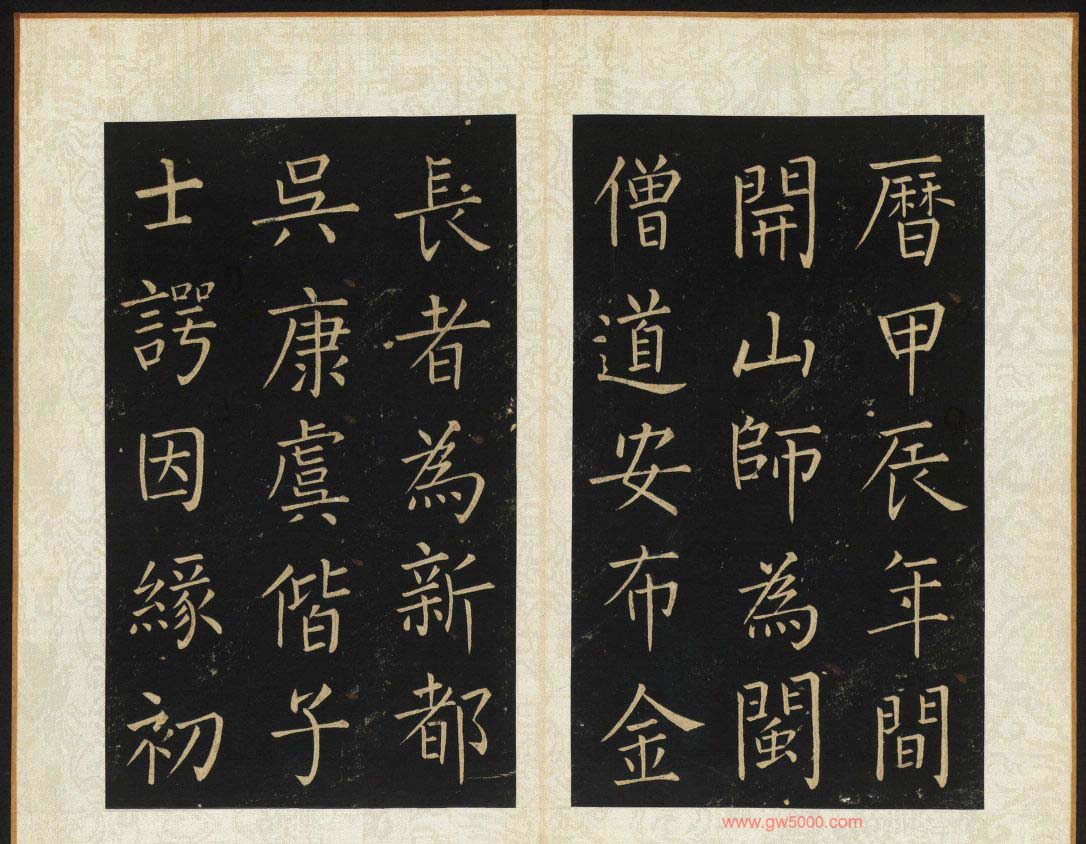 曆甲辰年間
開山師為閩
僧道安布金
長者為新都
吳康虞偕子
士諤因緣初
www.gw5000.com